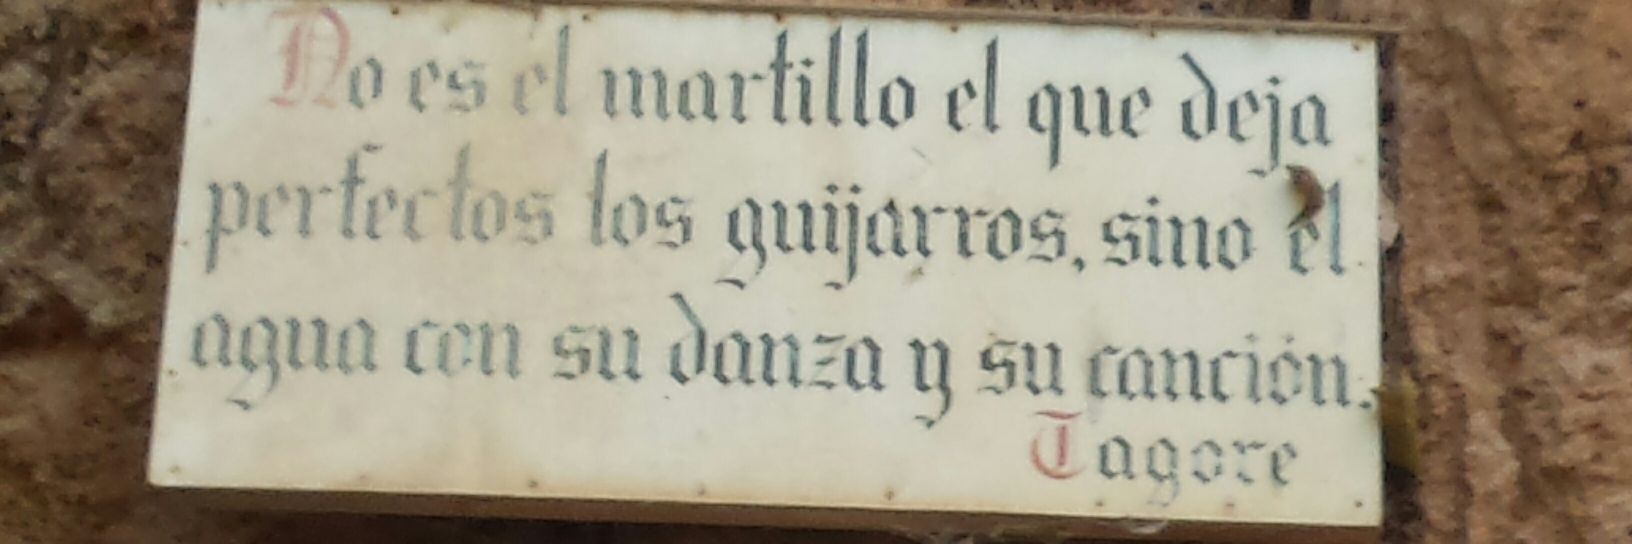 No es el martillo el que deja
perfectos los guijarros, sino el
agua con su danza y su canción.
Tagore